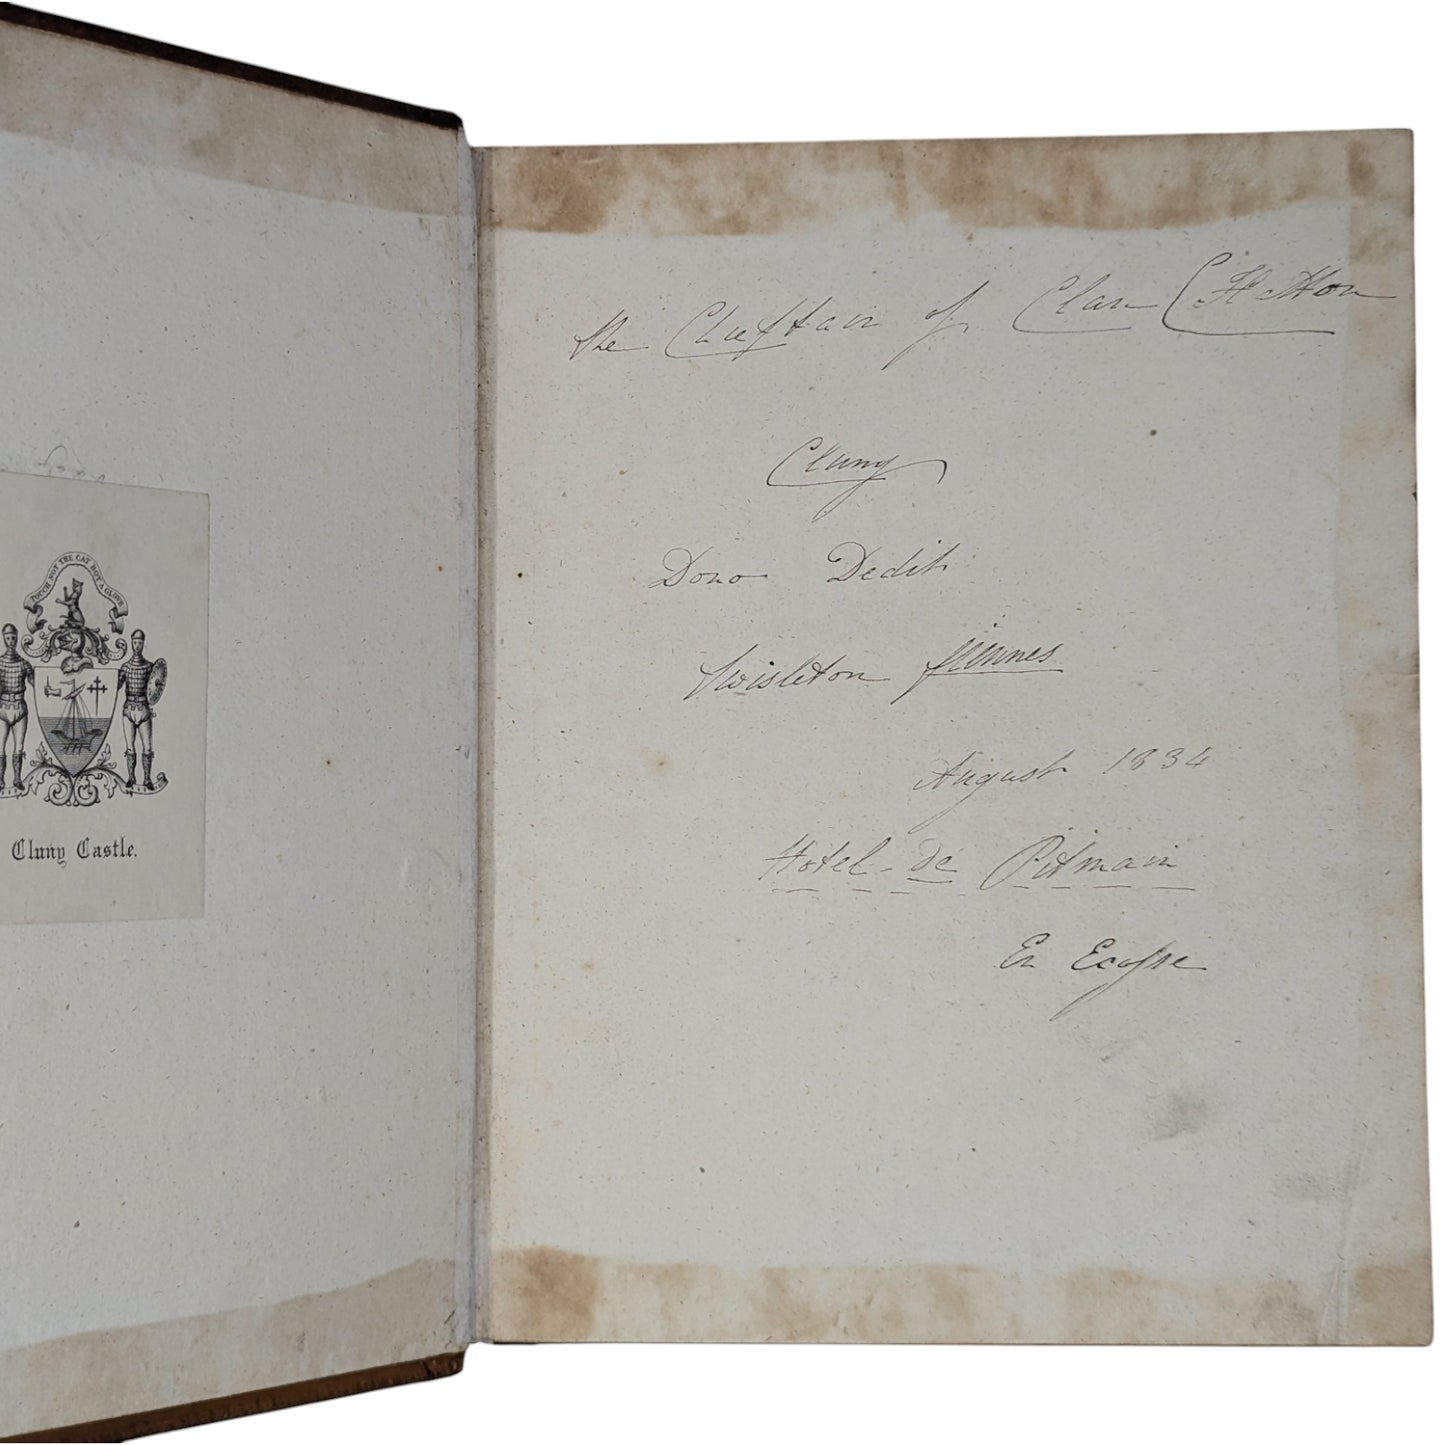 TOUCH NOT THE CAT BOT A GLOVE
Cluny Castle.
the Chieftain of Clan Chatton
Cluny
Dono Dedit
Twisleton ffiennes
August 1834
Hotel-de Pitmain
En Ecosse